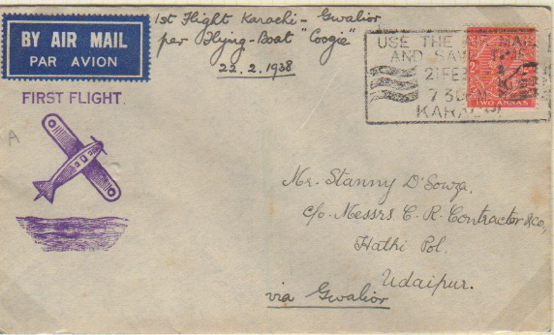 BY AIR MAIL
PAR AVION
1st Flight Karachi - Gwalior
per Flying-Boat "Coogie"
22.2.1938
USE THE AIR MAIL
AND SAVE TIME
21 FEB
7 30
KARACHI
TWO ANNAS
FIRST FLIGHT
A
Mr. Stanny D'Souza.
C/o. Messrs C. R. Contractor & Co,
Hathi Pol.
Udaipur.
via Gwalior